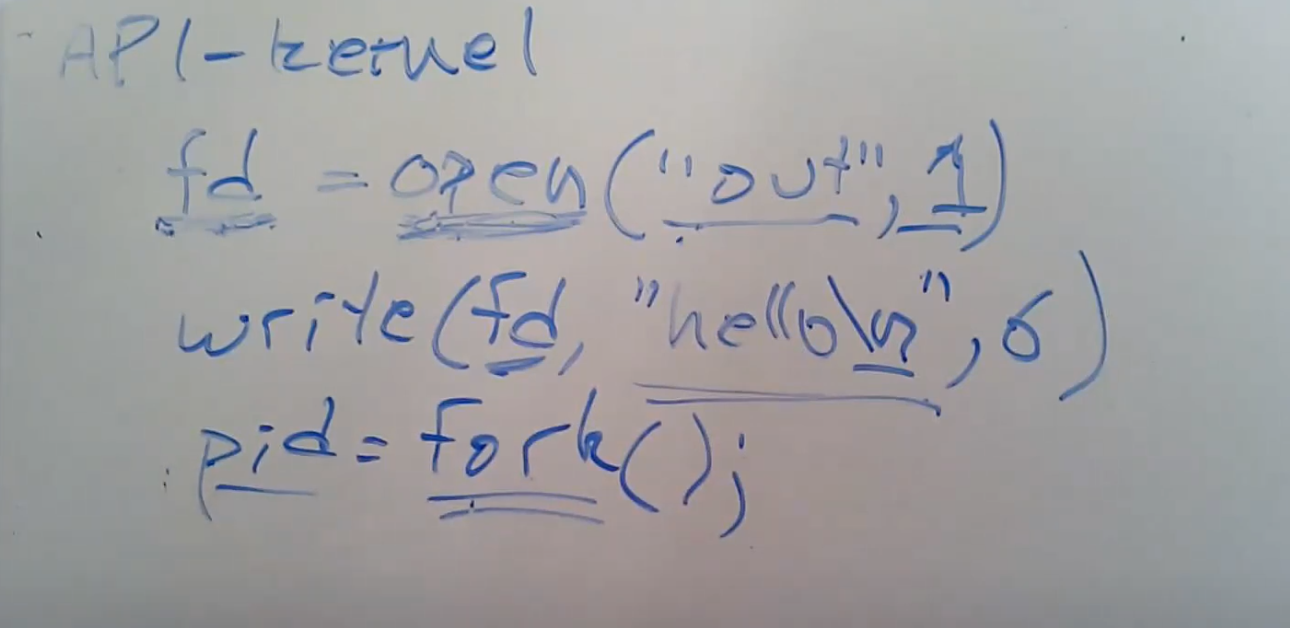 API-kernel
fd = open("out",1)
write(fd, "hello\n",6)
pid= fork();